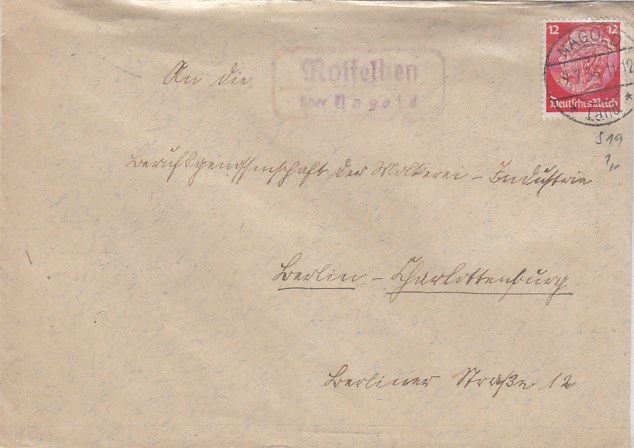 An die
Rotfelden
über Nagold
12 12
Deutsches Reich
NAGOLD
12
Land
S 19
Berufsgenossenschaft der Molkerei - Industrie
Berlin - Charlottenburg
Berliner Straße 12